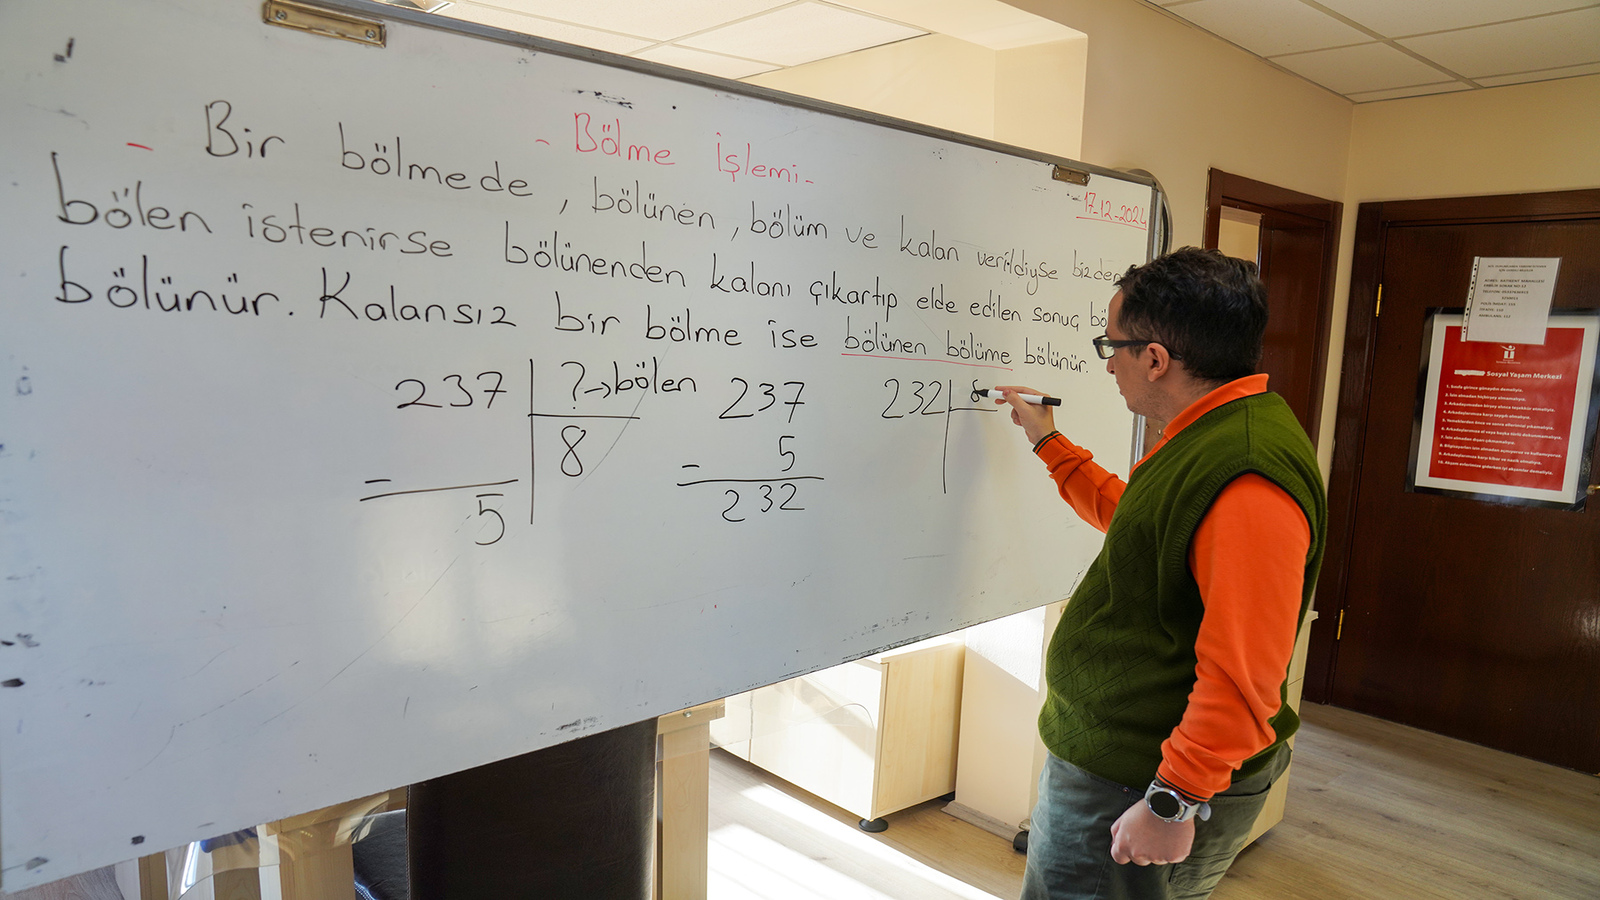 - Bölme İşlemi -
17-12-2024
- Bir bölmede, bölünen, bölüm ve kalan verildiyse bizden
bölen istenirse bölünenden kalanı çıkartıp elde edilen sonuç bö
bölünür. Kalansız bir bölme ise bölünen bölüme bölünür.
237 ?→bölen
8
-
5
237
- 5
232
232 8
Sosyal Yaşam Merkezi